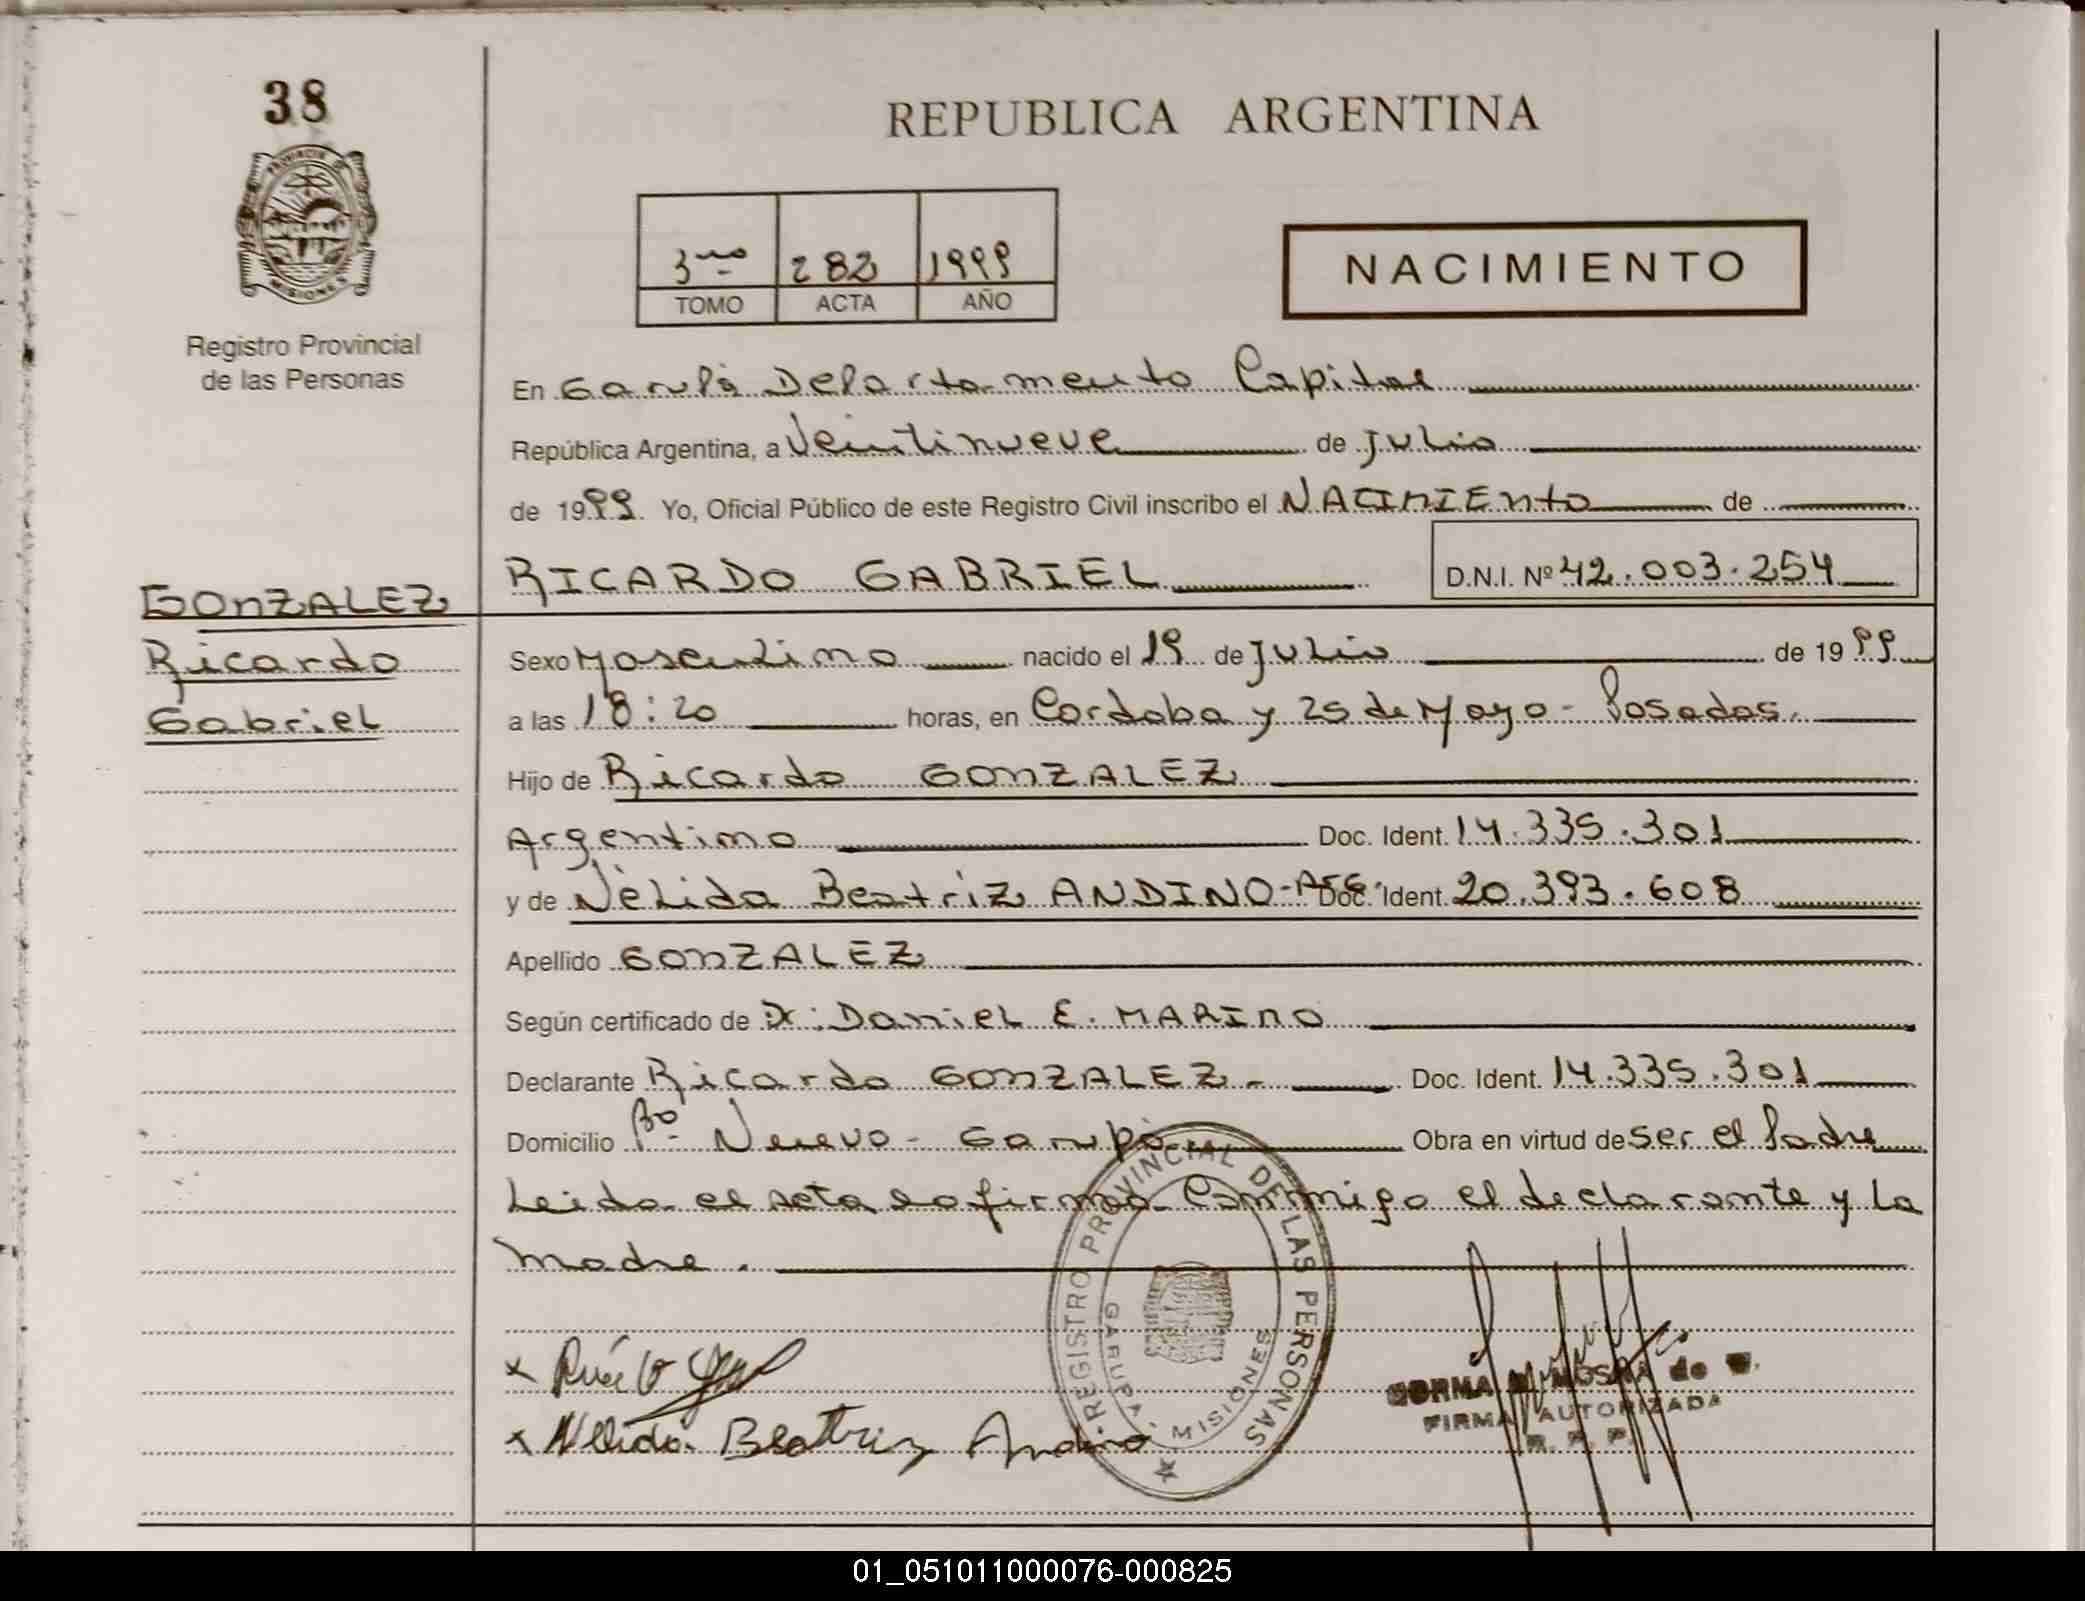 38
REPUBLICA ARGENTINA
PROVINCIA DE MISIONES
Registro Provincial
de las Personas
3ro 282 1999
TOMO ACTA AÑO
NACIMIENTO
En Garupá Departamento Capital
República Argentina, a Veintinueve de Julio
de 1999 Yo, Oficial Público de este Registro Civil inscribo el NACIMIENTO de
RICARDO GABRIEL D.N.I. Nº 42.003.254
GONZALEZ
Ricardo
Gabriel
Sexo Masculino nacido el 19 de Julio de 1999
a las 18:20 horas, en Cordoba y 25 de Mayo - Posadas.
Hijo de Ricardo GONZALEZ
Argentino Doc. Ident. 14.335.301
y de Nélida Beatriz ANDINO-Arg. Doc. Ident. 20.393.608
Apellido GONZALEZ
Según certificado de Dr. Daniel E. MARINO
Declarante Ricardo GONZALEZ - Doc. Ident. 14.335.301
Domicilio Bº Nuevo - Garupá Obra en virtud de ser el Padre
Leida el acta la firma Conmigo el declarante y la
madre.
REGISTRO PROVINCIAL DE LAS PERSONAS
GARUPA MISIONES
x
x Nelida Beatriz Andino
NORMA de
FIRMA AUTORIZADA
R. P. P.
01_051011000076-000825